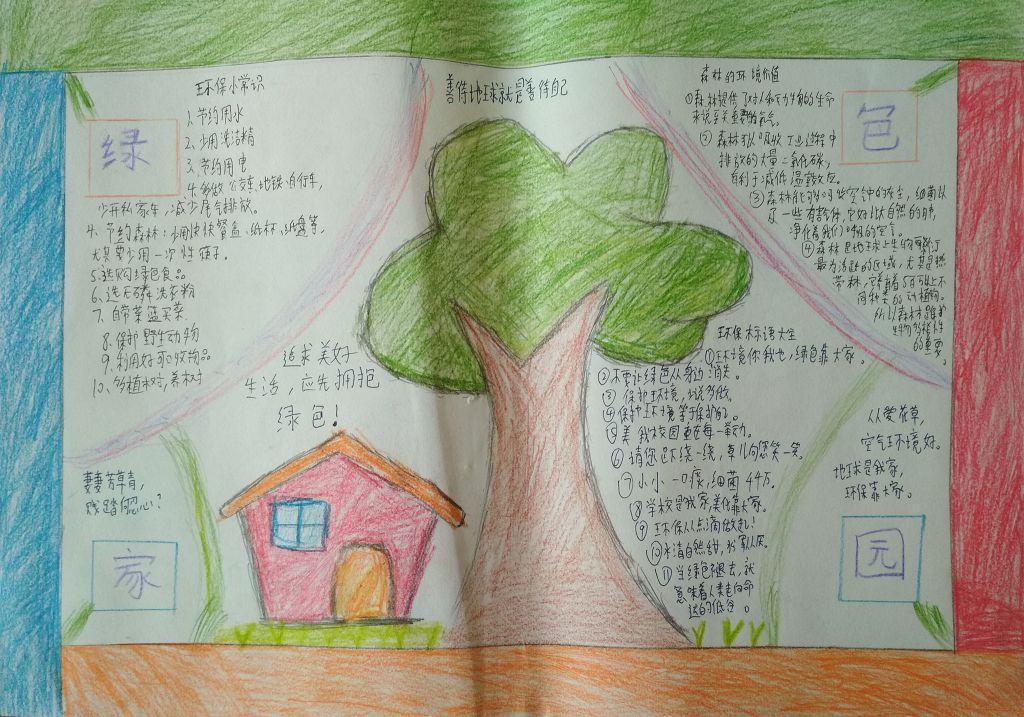 善待地球就是善待自己
绿
环保小常识
1、节约用水
2、少用洗洁精
3、节约用电
4、多做公交车、地铁、自行车，
少开私家车，减少尾气排放。
4、节约森林：少用快餐盒、纸杯、纸盘等，
尤其要少用一次性筷子。
5、选购绿色食品
6、选无磷洗衣粉
7、自带菜篮买菜
8、保护野生动物
9、利用好可收物品
10、多植树，养树
追求美好
生活，应先拥抱
绿色！
萋萋芳草青，
践踏何忍心？
家
色
森林的环境价值
①森林提供了对人和动物的生命
来说至关重要的氧气。
② 森林可以吸收工业过程中
排放的大量二氧化碳，
有利于减低温室效应。
③森林能够吸些空气中的灰尘，细菌以
及一些有害气体，它好比大自然的肺，
净化着我们呼吸的空气。
④森林是地球上生物
最为活跃的区域，尤其是热
带林，
同种类的动植物。
所以森林对维护
生物多样性
的重要
环保标语大全
①环境你我他，绿色靠大家。
②不要让绿色从身边消失。
③保护环境，少说多做。
④保护环境等于保护自己。
⑤美我校园重在每一举动。
⑥请您足下绕一绕，草儿向您笑一笑。
⑦小小一口痰，细菌千千万。
⑧学校是我家，美化靠大家。
⑨环保从点滴做起！
⑩水清自然甜，
⑪当绿色褪去，就
意味着人类走向命
运的低谷。
从爱花草，
空气环境好。
地球是我家，
环保靠大家。
园